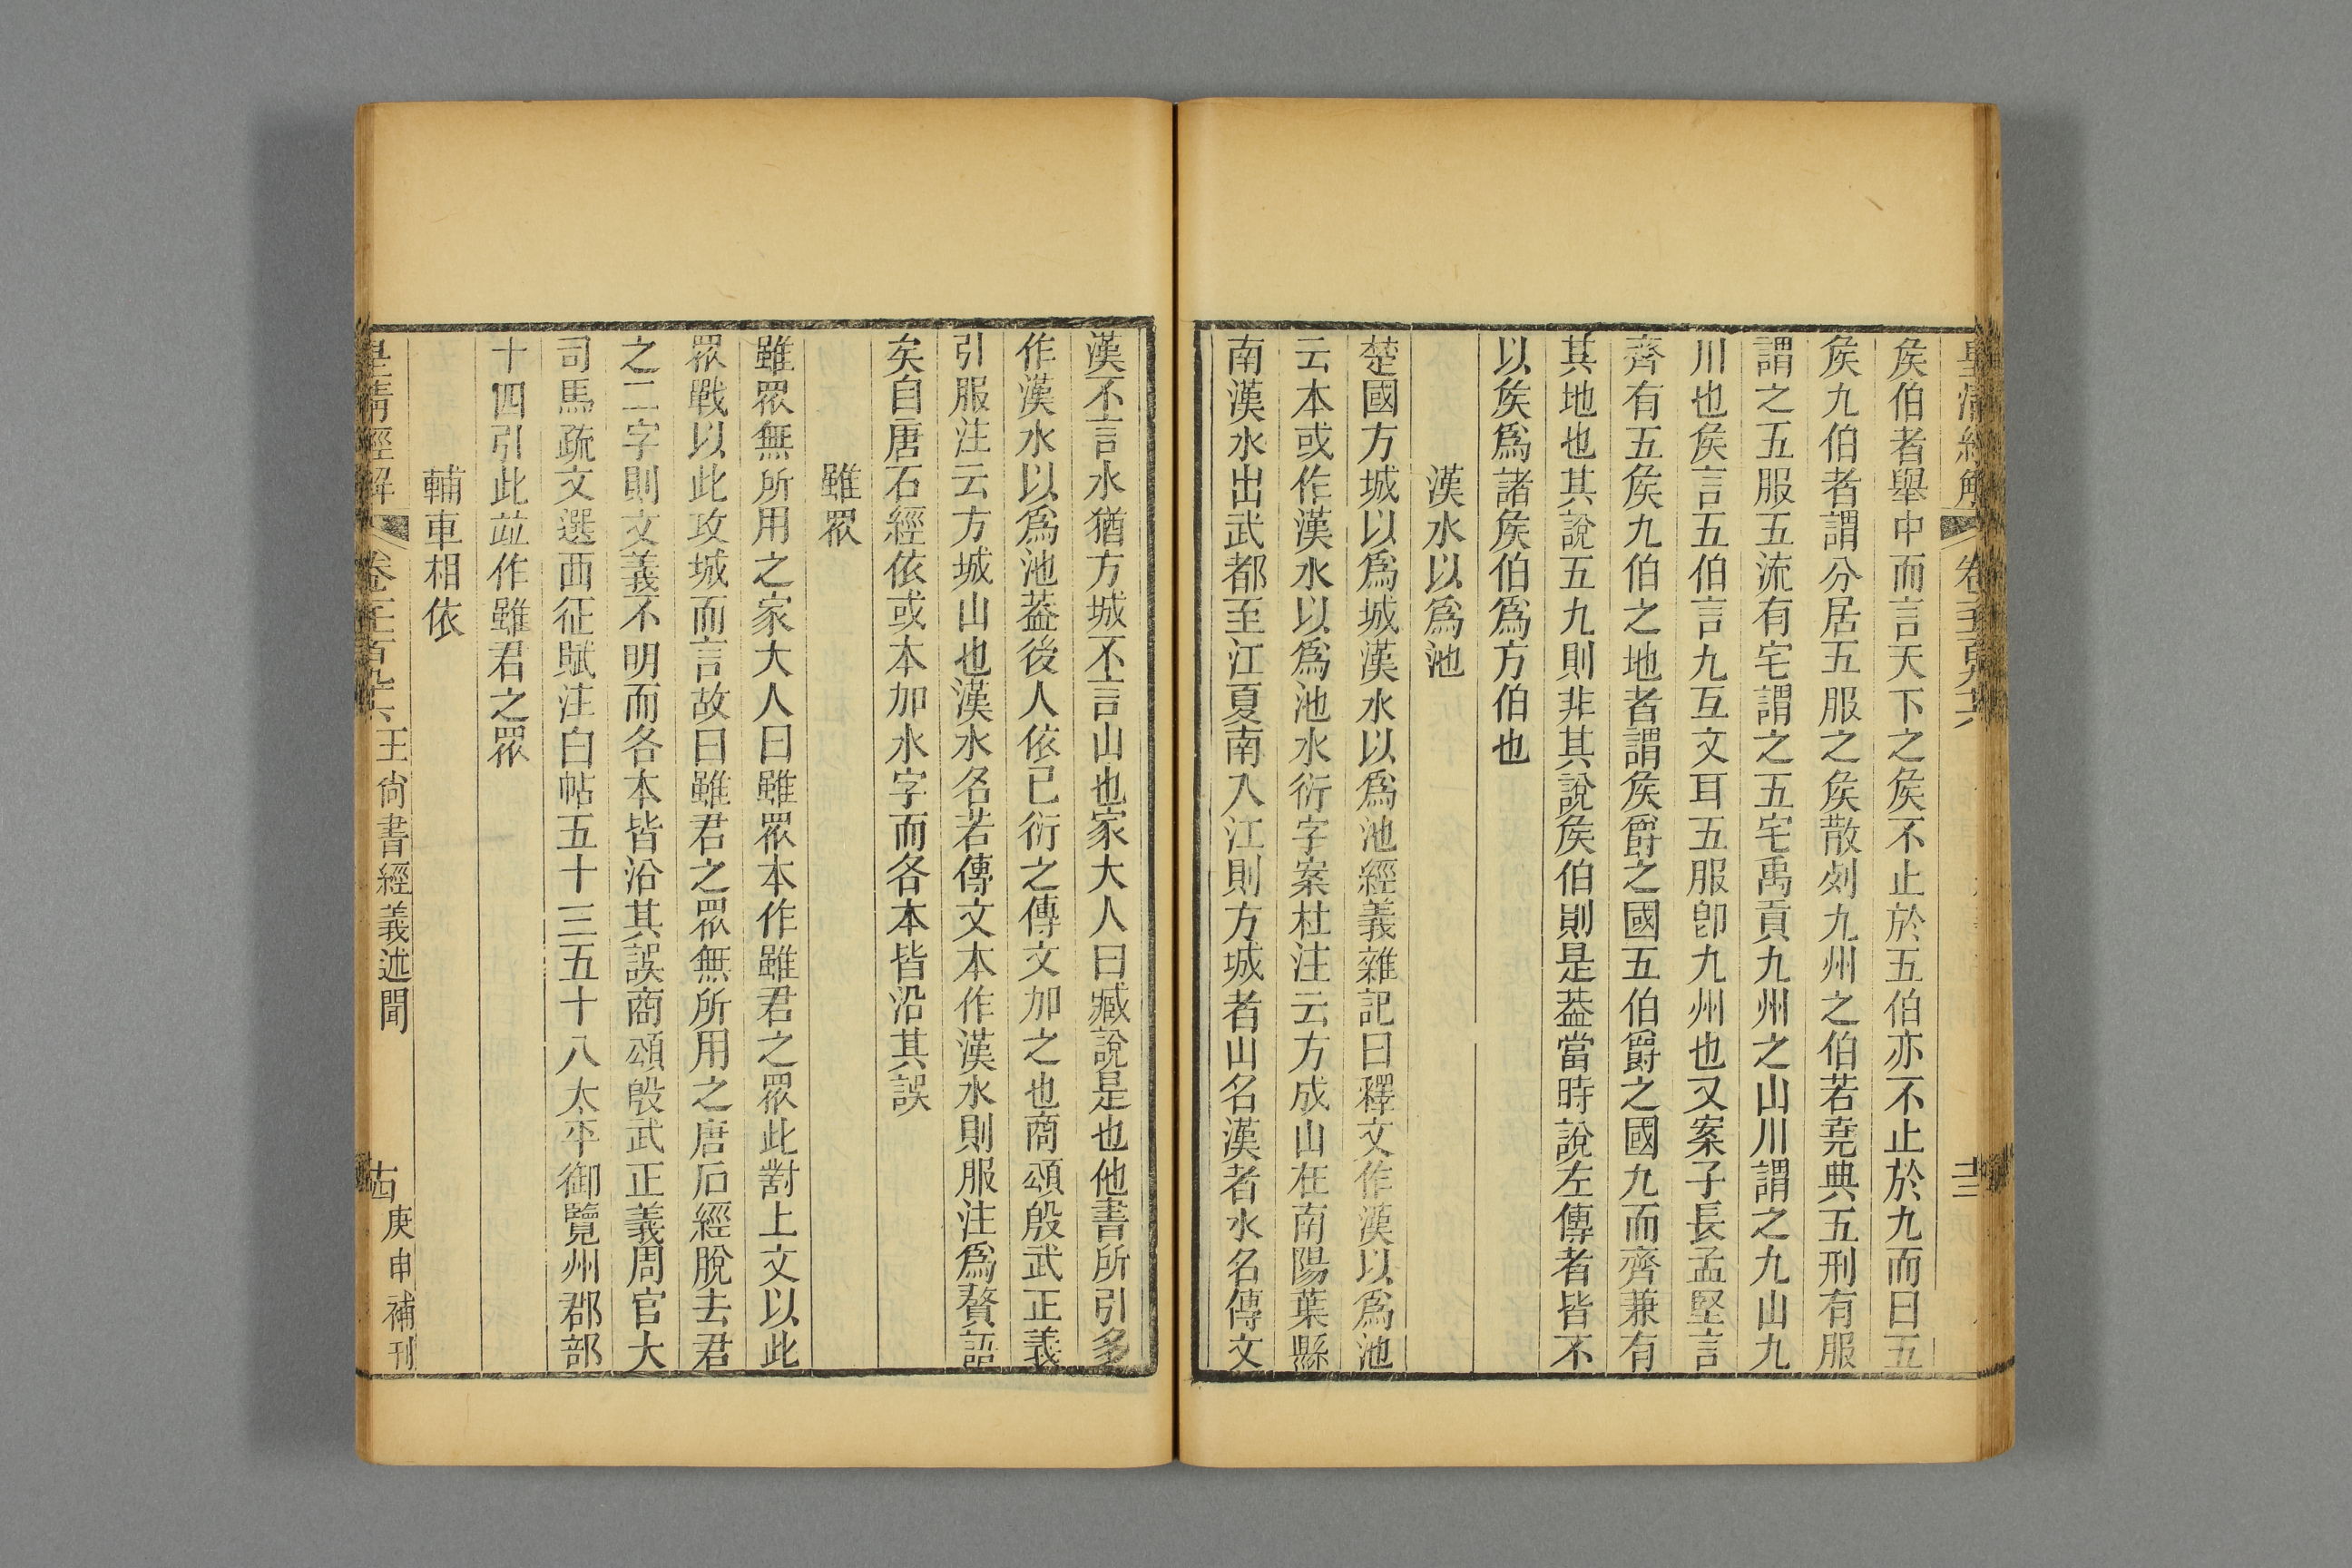 皇清經解 卷一千一百九十六
十三
矦伯者舉中而言天下之矦不止於五伯亦不止於九而曰五
矦九伯者謂分居五服之矦散列九州之伯若堯典五刑有服
謂之五服五流有宅謂之五宅禹貢九州之山川謂之九山九
川也矦言五伯言九互文耳五服卽九州也又案子長孟堅言
齊有五矦九伯之地者謂矦爵之國五伯爵之國九而齊兼有
其地也其說五九則非其說矦伯則是葢當時說左傳者皆不
以矦爲諸矦伯爲方伯也
漢水以爲池
楚國方城以爲城漢水以爲池經義雜記曰釋文作漢以爲池
云本或作漢水以爲池水衍字案杜注云方成山在南陽葉縣
南漢水出武都至江夏南入江則方城者山名漢者水名傳文
漢不言水猶方城不言山也家大人曰臧說是也他書所引多
作漢水以爲池葢後人依已衍之傳文加之也商頌殷武正義
引服注云方城山也漢水名若傳文本作漢水則服注爲贅語
矣自唐石經依或本加水字而各本皆沿其誤
雖眾
雖眾無所用之家大人曰雖眾本作雖君之眾此對上文以此
眾戰以此攻城而言故曰雖君之眾無所用之唐石經脫去君
之二字則文義不明而各本皆沿其誤商頌殷武正義周官大
司馬疏文選西征賦注白帖五十三五十八太平御覽州郡部
十四引此竝作雖君之眾
輔車相依
皇清經解 卷 王尚書經義述聞
十四 庚申補刊